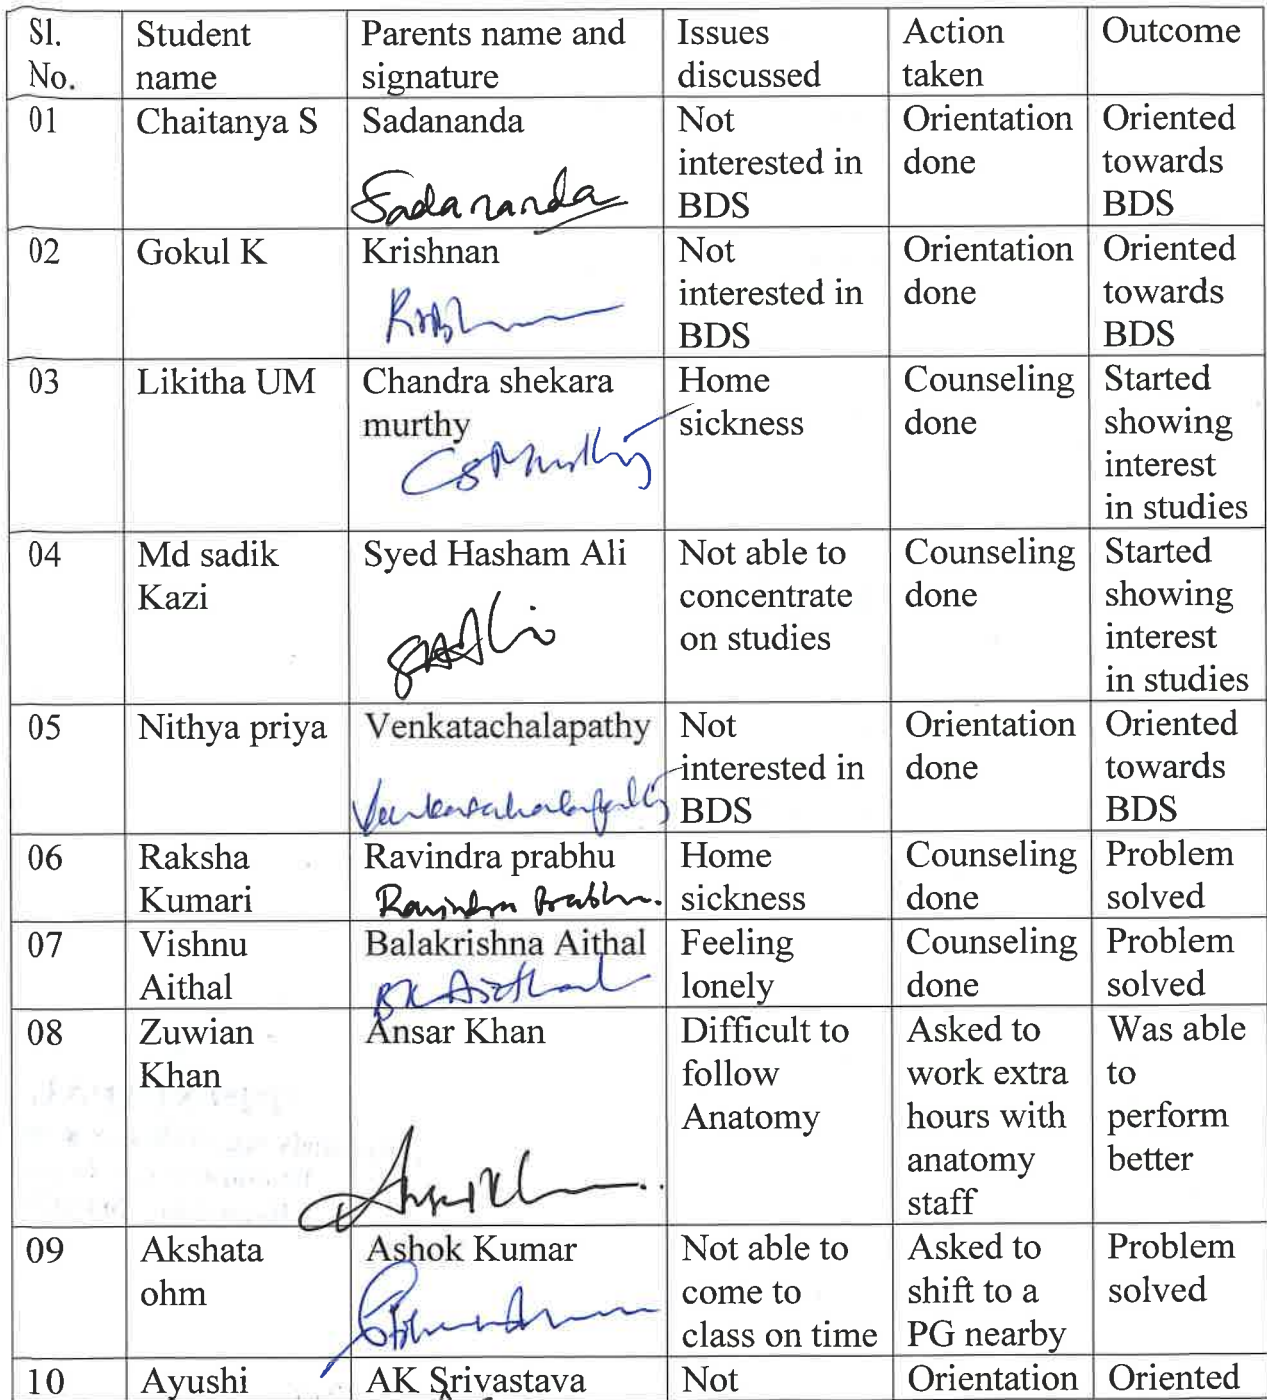 Sl. No. | Student name | Parents name and signature | Issues discussed | Action taken | Outcome
01 | Chaitanya S | Sadananda Sadananda | Not interested in BDS | Orientation done | Oriented towards BDS
02 | Gokul K | Krishnan | Not interested in BDS | Orientation done | Oriented towards BDS
03 | Likitha UM | Chandra shekara murthy CSMurthy | Home sickness | Counseling done | Started showing interest in studies
04 | Md sadik Kazi | Syed Hasham Ali | Not able to concentrate on studies | Counseling done | Started showing interest in studies
05 | Nithya priya | Venkatachalapathy Venkatachalapathy | Not interested in BDS | Orientation done | Oriented towards BDS
06 | Raksha Kumari | Ravindra prabhu Ravindra Prabhu. | Home sickness | Counseling done | Problem solved
07 | Vishnu Aithal | Balakrishna Aithal BK Aithal | Feeling lonely | Counseling done | Problem solved
08 | Zuwian Khan | Ansar Khan | Difficult to follow Anatomy | Asked to work extra hours with anatomy staff | Was able to perform better
09 | Akshata ohm | Ashok Kumar | Not able to come to class on time | Asked to shift to a PG nearby | Problem solved
10 | Ayushi | AK Srivastava | Not | Orientation | Oriented